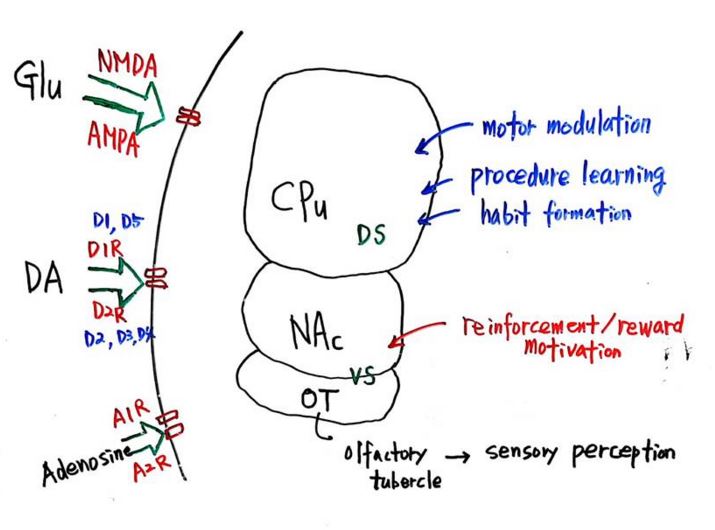 Glu
NMDA
AMPA
D1, D5
D1R
DA
D2R
D2, D3, D4
A1R
Adenosine
A2R
CPu
DS
NAc
VS
OT
motor modulation
procedure learning
habit formation
reinforcement/reward
motivation
olfactory → sensory perception
tubercle